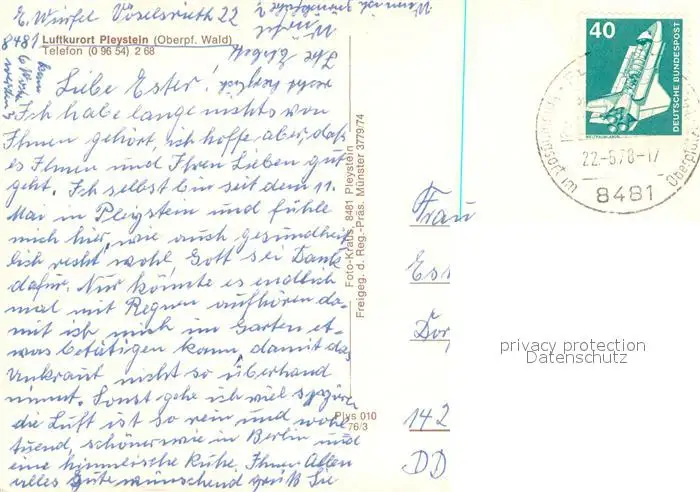 E. Würfel Vöselsrieth 22
8481
Luftkurort Pleystein (Oberpf. Wald)
Telefon (0 96 54) 2 68
Liebe Ester!
Ich habe lange nichts von
Ihnen gehört, ich hoffe aber, daß
es Ihnen und Ihren Lieben gut
geht. Ich selbst bin seit dem 11.
Mai in Pleystein und fühle
mich hier, wie auch gesundheit
lich recht wohl Gott sei Dank
dafür. Nur könnte es endlich
mal mit Regnen aufhören da-
mit ich mich im Garten et-
was betätigen kann, damit das
Unkraut nicht so überhand
nimmt. Sonst gehe ich viel spazieren
die Luft ist so rein und wohl
tuend, schöner wie in Berlin und
eine himmlische Ruhe, Ihnen Allen
alles Gute wünschend grüß Sie
Foto-Kraus, 8481 Pleystein
Freigeg. d. Reg.-Präs. Münster 3779/74
Plys 010
76/3
40
DEUTSCHE BUNDESPOST
22.-5.78-17
8481
Frau
Es
Dor
142
DD
privacy protection
Datenschutz